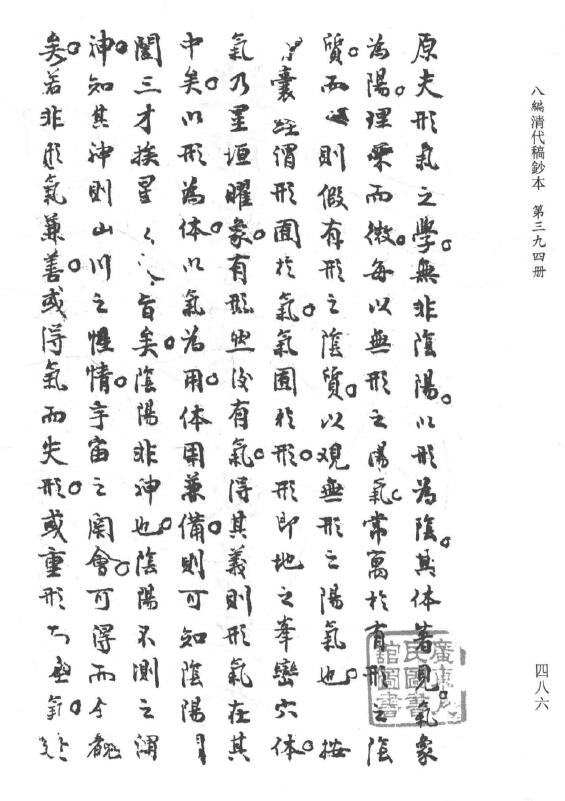 八編清代稿鈔本 第三九四册
四八六
原夫形氣之學無非陰陽以形為陰其体著見氣象
為陽理乘而微每以無形之陽氣常寓於有形之陰
質而則假有形之陰質以观無形之陽氣也按
囊經謂形囿於氣氣囿於形形即地之峯巒穴体
氣乃星垣曜象有形然後有氣得其義則形氣在其
中矣以形為体以氣為用体用兼備則可知陰陽
闔三才揆星旨矣陰陽非神也陰陽不測之謂
神知其神則山川之性情宇宙之関會可得而今覩
矣若非形氣兼善或得氣而失形或重形氣
廣東省
民圖書
舘圖書